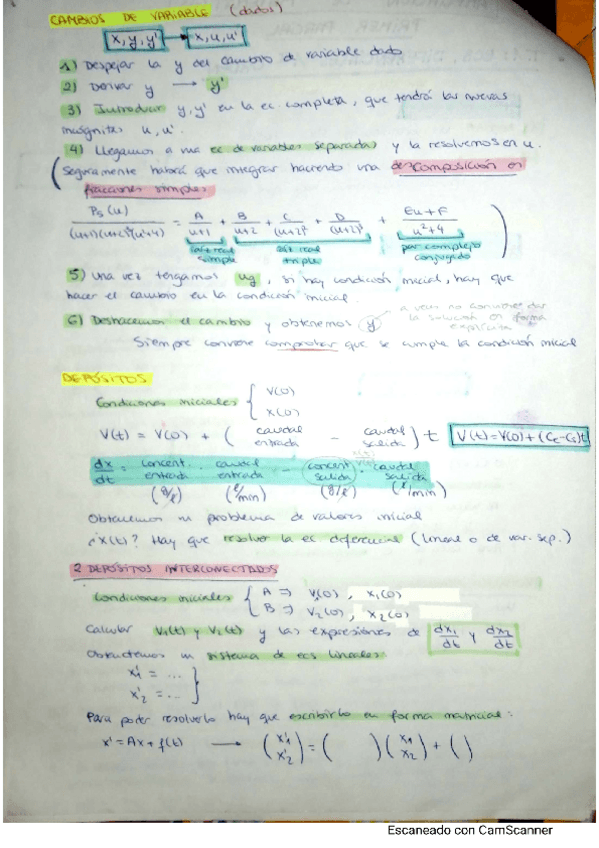 CAMBIOS DE VARIABLE (dados)
x, y, y' → x, u, u'
1) Despejar la y del cambio de variable dado
2) Derivar y → y'
3) Introducir y, y' en la ec. completa, que tendrá las nuevas
incógnitas u, u'.
4) Llegamos a una ec de variables separadas y la resolvemos en u.
(Seguramente habrá que integrar haciendo una descomposición en
fracciones simples
P₅(u) / (u+1)(u+2)³(u²+4) = A/(u+1) + B/(u+2) + C/(u+2)² + D/(u+2)³ + (Eu+F)/(u²+4) )
raíz real simple raíz real triple par complejo conjugado
5) Una vez tengamos ug, si hay condición inicial, hay que
hacer el cambio en la condición inicial.
6) Deshacemos el cambio y obtenemos y
a veces no conviene dar la solución en forma explícita
Siempre conviene comprobar que se cumple la condición inicial
DEPÓSITOS
Condiciones iniciales { V(0)
X(0)
V(t) = V(0) + ( caudal entrada - caudal salida ) t V(t) = V(0) + (Ce-Cs)t
dx/dt = concent. entrada · caudal entrada - concent. salida · caudal salida
(g/l) (l/min) (g/l) (l/min)
Obtenemos un problema de valores inicial
¿X(t)? Hay que resolver la ec diferencial (lineal o de var. sep.)
2 DEPÓSITOS INTERCONECTADOS
Condiciones iniciales { A ⇒ V₁(0), x₁(0)
B ⇒ V₂(0), x₂(0)
Calcular V₁(t) y V₂(t) y las expresiones de dx₁/dt y dx₂/dt
Obtenemos un sistema de ecs lineales:
x'₁ = ...
x'₂ = ... }
Para poder resolverlo hay que escribirlo en forma matricial:
x' = Ax + f(t) → (x'₁ x'₂) = ( ) (x₁ x₂) + ( )
Escaneado con CamScanner